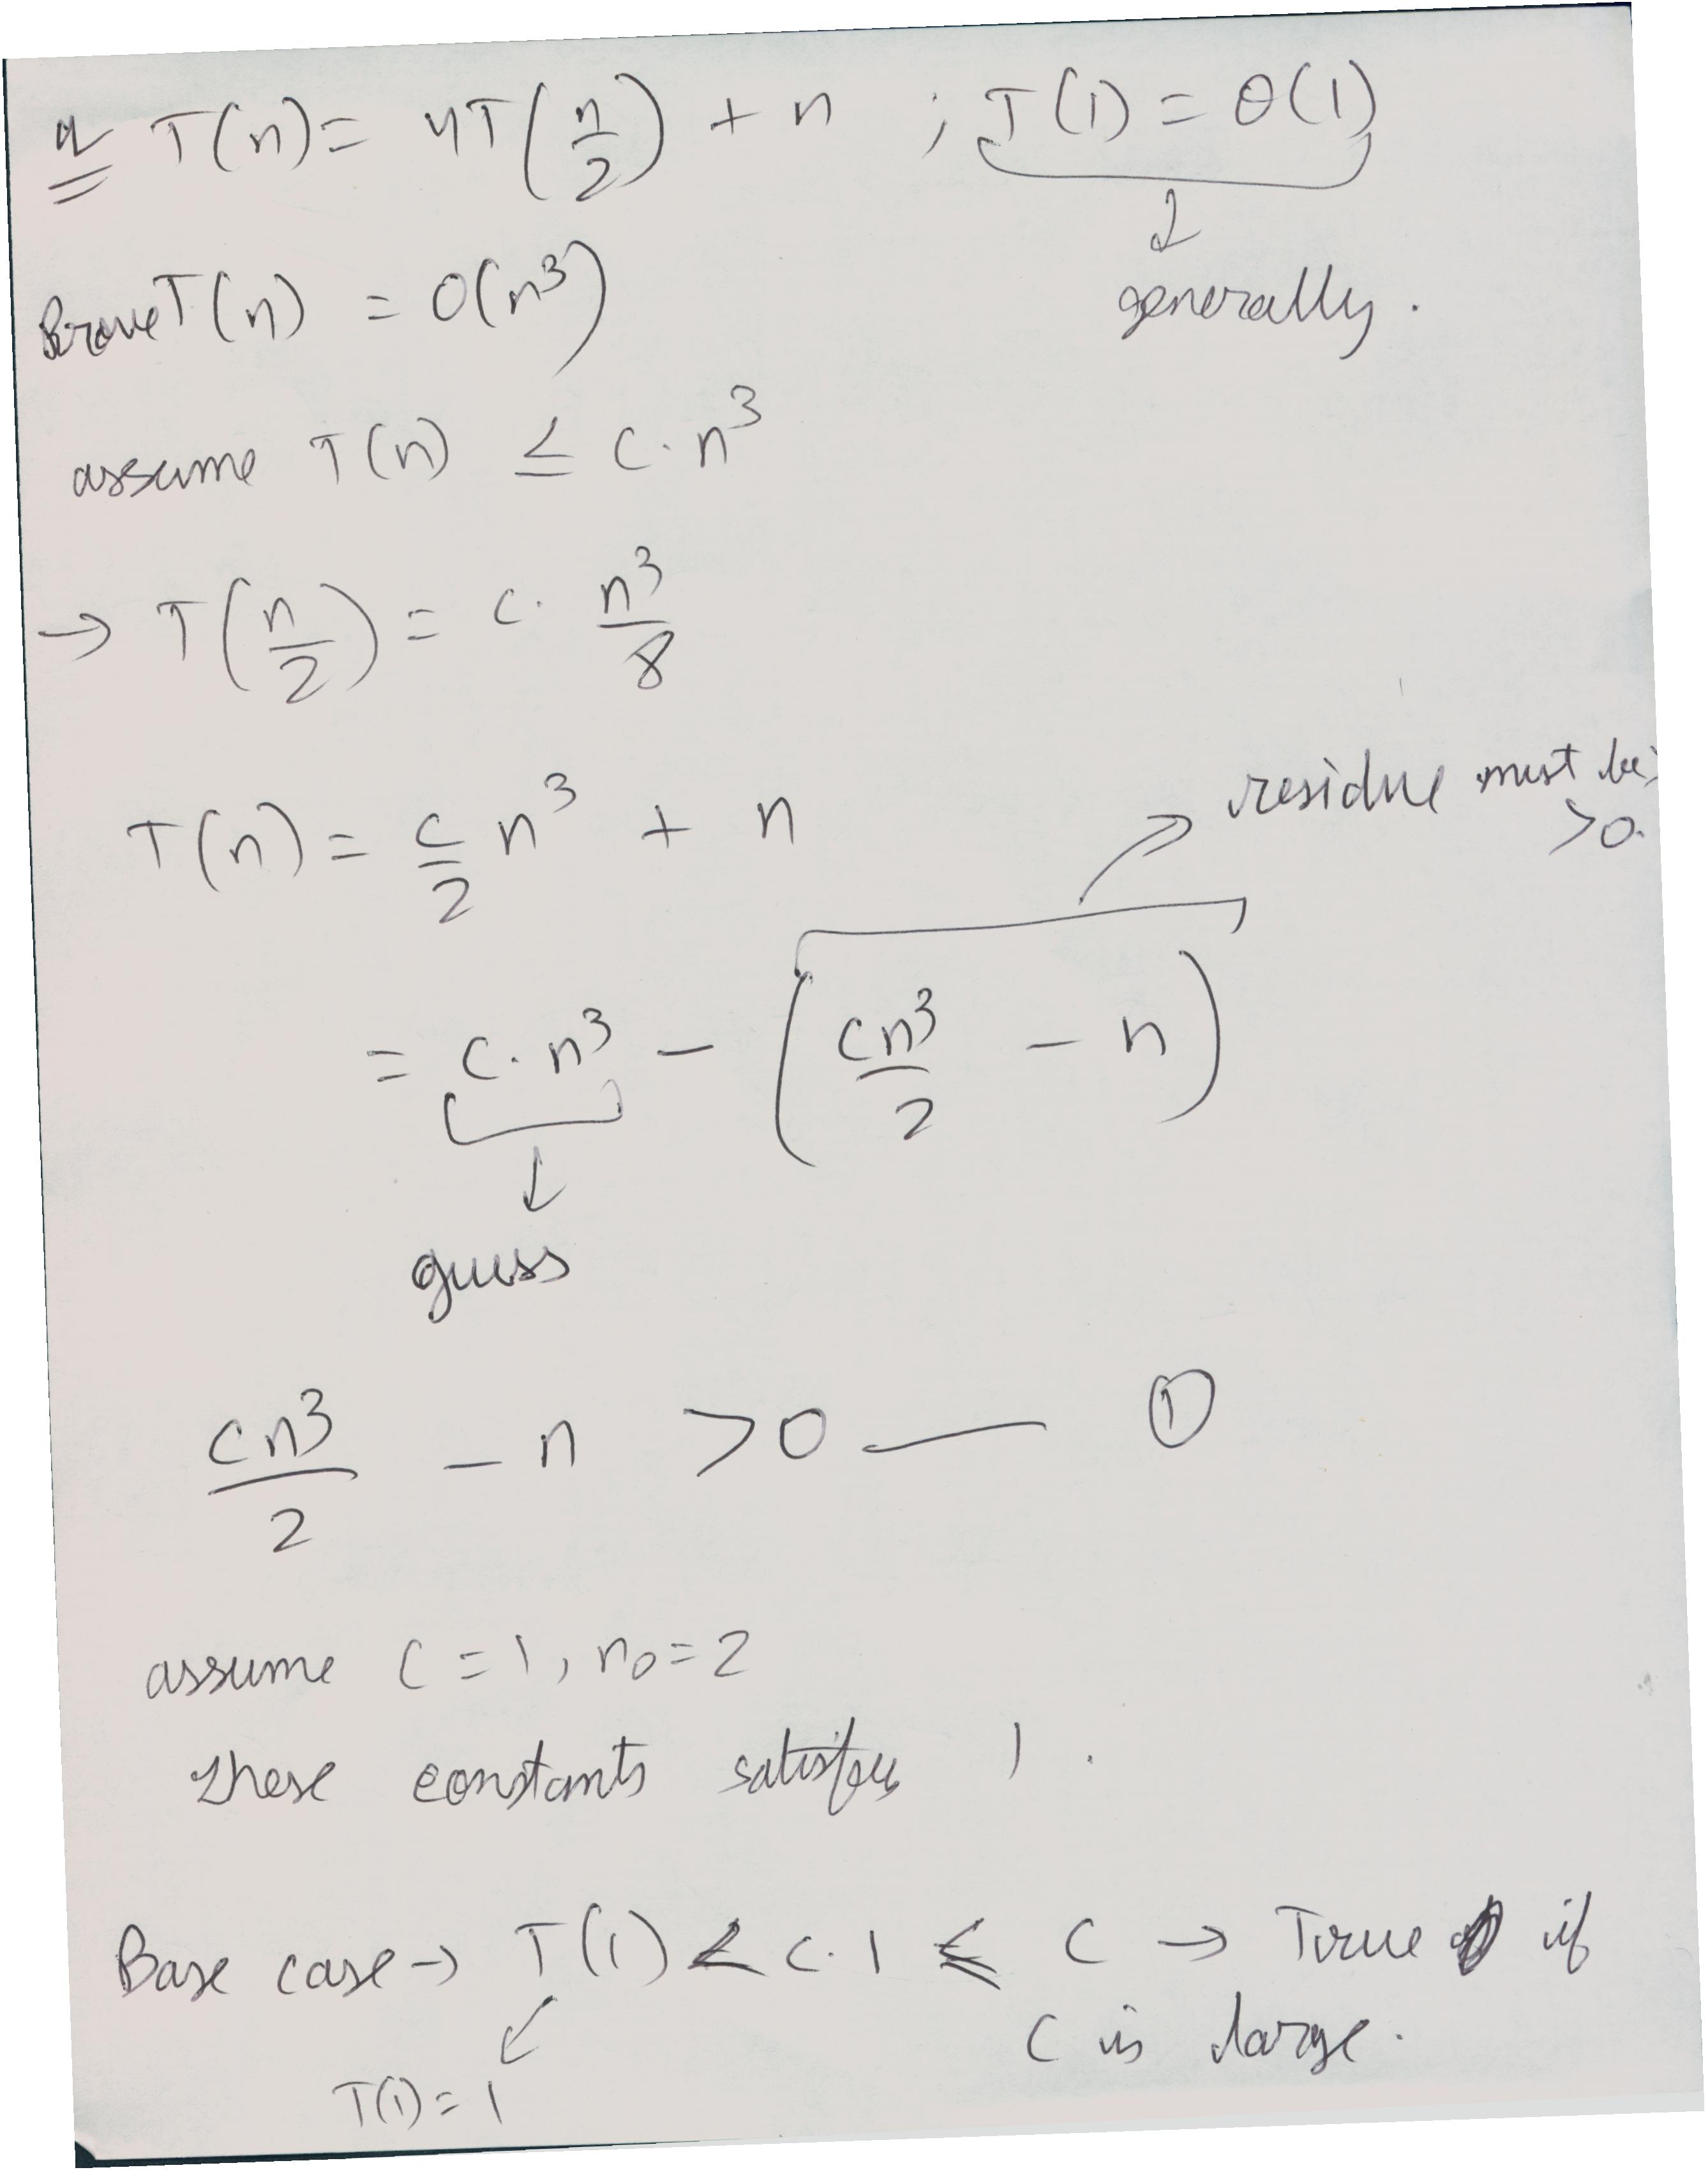 q T(n) = 4T(n/2) + n ; T(1) = θ(1)
↓
generally.
Prove T(n) = O(n³)
assume T(n) ≤ c.n³
→ T(n/2) = c. n³/8
residue must be >0.
T(n) = c/2 n³ + n
= c.n³ - (cn³/2 - n)
↓
guess
cn³/2 - n >0 — ①
assume c=1, n₀=2
these constants satisfies 1.
Base case → T(1) ≤ c.1 ≤ c → True if
c is large.
T(1)=1